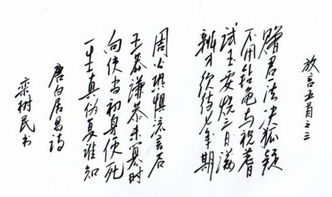 放言五首之三
赠君一法决狐疑
不用钻龟与祝蓍
试玉要烧三日满
辨材须待七年期
周公恐惧流言后
王莽谦恭未篡时
向使当初身便死
一生真伪复谁知
唐白居易诗
栾树民书